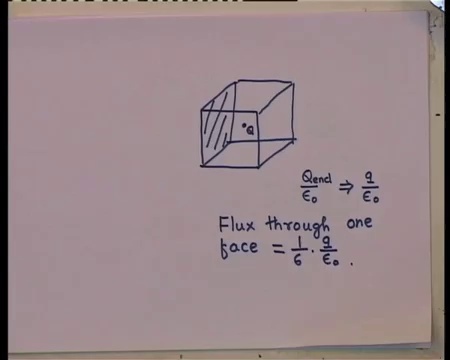 Q
Qencl/ε₀ ⇒ q/ε₀
Flux through one
face = 1/6 · q/ε₀ .